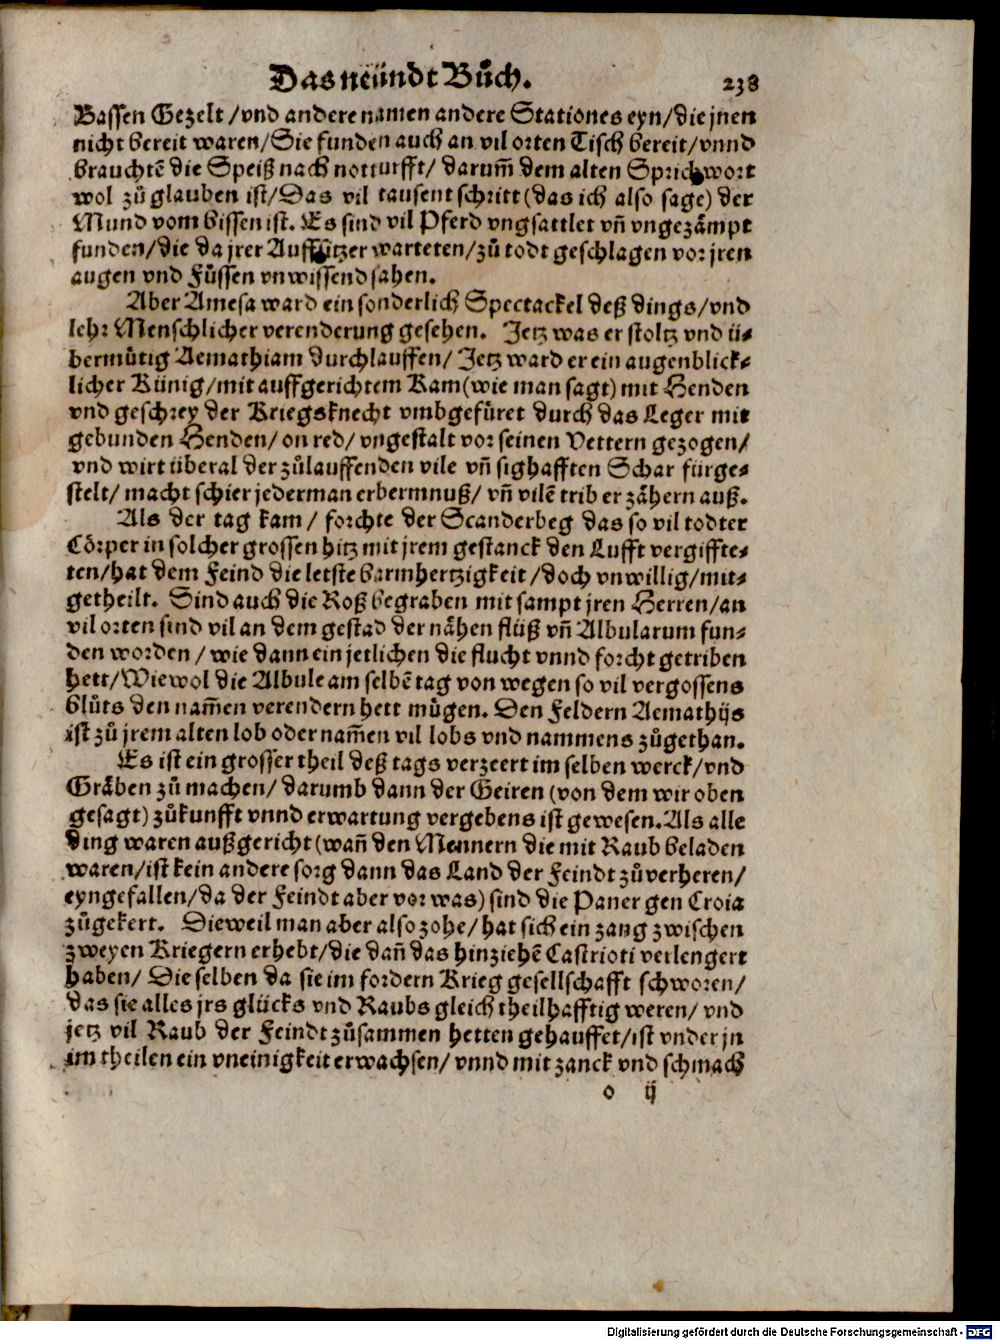 Das neündt Bůch. 238
Bassen Gezelt /vnd andere namen andere Stationes eyn/die jnen
nicht bereit waren/Sie funden auch an vil orten Tisch bereit/vnnd
brauchtē die Speiß nach notturfft/ darum̄ dem alten Sprichwort
wol zů glauben ist/Das vil tausent schritt (das ich also sage) der
Mund vom bissen ist. Es sind vil Pferd vngsattlet vn̄ vngezämpt
funden/die da jrer Auffsitzer warteten/zů todt geschlagen vor jren
augen vnd Füssen vnwissend sahen.
Aber Amesa ward ein sonderlich Spectackel deß dings/vnd
lehr Menschlicher verenderung gesehen. Jetz was er stoltz vnd ü-
bermütig Aemathiam durchlauffen/ Jetz ward er ein augenblick-
licher Künig/mit auffgerichtem Kam(wie man sagt) mit Henden
vnd geschrey der Kriegsknecht vmbgefüret durch das Leger mit
gebunden Henden/ on red/ vngestalt vor seinen Vettern gezogen/
vnd wirt überal der zůlauffenden vile vn̄ sighafften Schar fürge-
stelt/ macht schier jederman erbermnuß/ vn̄ vilē trib er zähern auß.
Als der tag kam / forchte der Scanderbeg das so vil todter
Cörper in solcher grossen hitz mit jrem gestanck den Lufft vergiffte-
ten/hat dem Feind die letste barmhertzigkeit /doch vnwillig/mit-
getheilt. Sind auch die Roß begraben mit sampt jren Herren/an
vil orten sind vil an dem gestad der nähen flüß vn̄ Albularum fun-
den worden / wie dann ein jetlichen die flucht vnnd forcht getriben
hett/Wiewol die Albule am selbē tag von wegen so vil vergossens
blůts den nam̄en verendern hett mügen. Den Feldern Aemathijs
ist zů jrem alten lob oder nam̄en vil lobs vnd nammens zůgethan.
Es ist ein grosser theil deß tags verzeert im selben werck/vnd
Gräben zů machen/ darumb dann der Geiren (von dem wir oben
gesagt) zůkunfft vnnd erwartung vergebens ist gewesen. Als alle
ding waren außgericht (wan̄ den Mennern die mit Raub beladen
waren/ist kein andere sorg dann das Land der Feindt zůverheren/
eyngefallen/da der Feindt aber vor was) sind die Paner gen Croia
zůgekert. Dieweil man aber also zohe/ hat sich ein zang zwischen
zweyen Kriegern erhebt/die dan̄ das hinziehē Castrioti verlengert
haben/ Die selben da sie im fordern Krieg gesellschafft schworen/
das sie alles jrs glücks vnd Raubs gleich theilhafftig weren/ vnd
jetz vil Raub der Feindt zůsammen hetten gehauffet/ist vnder jn
im theilen ein vneinigkeit erwachsen/ vnnd mit zanck vnd schmach
o ij
Digitalisierung gefördert durch die Deutsche Forschungsgemeinschaft - DFG